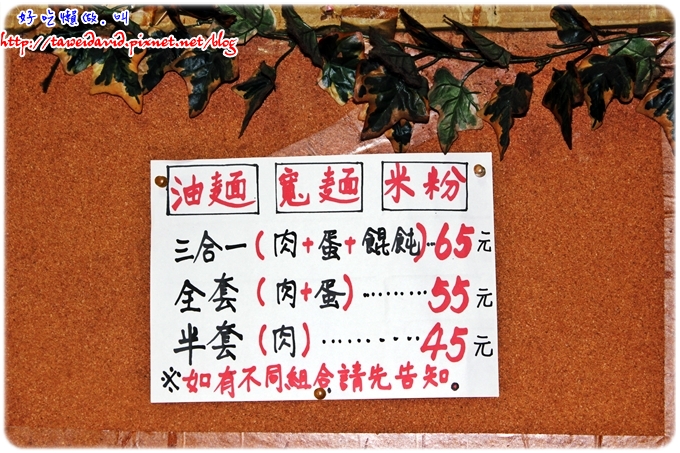 好吃懶做.叫
http://taweidavid.pixnet.net/blog
油麵 寬麵 米粉
三合一(肉+蛋+餛飩)..65元
全套(肉+蛋)........55元
半套(肉)..........45元
※如有不同組合請先告知.